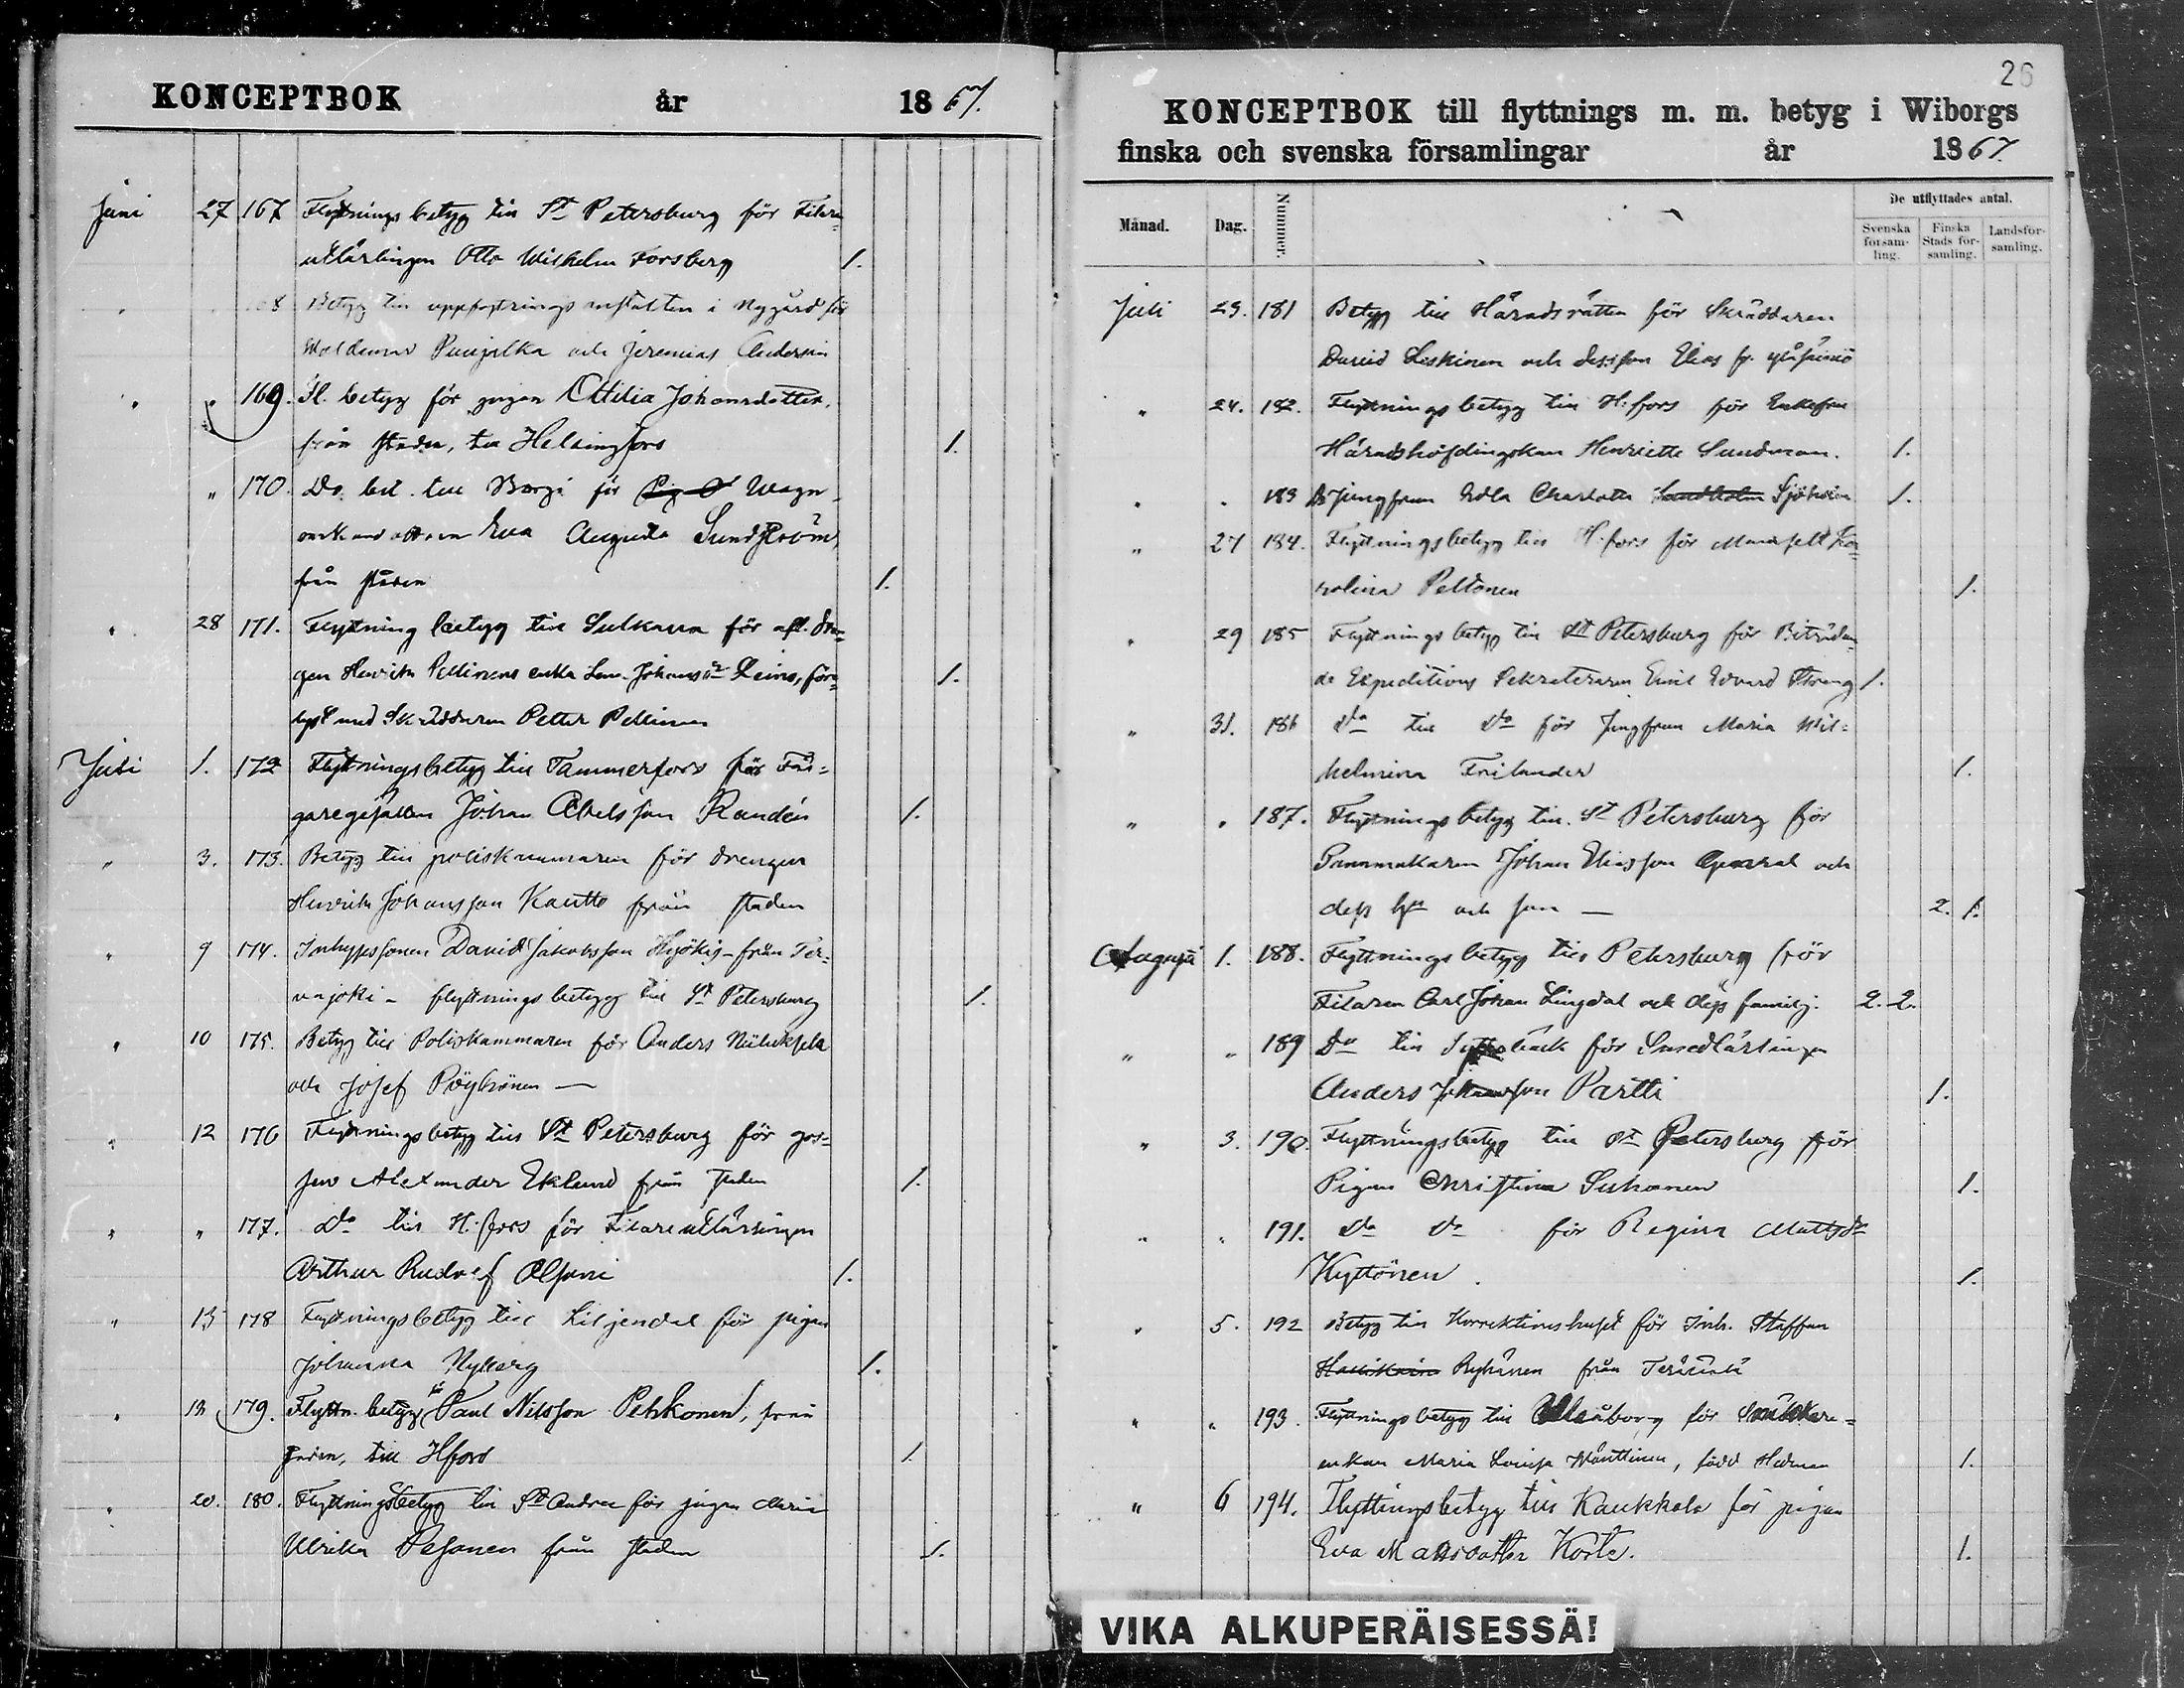 KONCEPTBOK år 1867.
Juni 27 167 Flyttningsbetyg till St Petersburg för Filare-
utlärlingen Otto Wilhelm Forsberg 1.
" " 168 Betyg till uppfostringsanstalten i Nygård för
Woldemar Punjelka och Jeremias Andersin
" " 169. Fl. betyg för pigan Ottilia Johannsdotter,
från staden, till Helsingfors 1.
" 170. Do. bet. till Borgå för Wagn-
Eva Augusta Sundström,
från staden 1.
" 28 171. Flyttning betyg till Sulkava för afl. drän-
gen Henrik Pellinens enka Lena Johansdr Reino, för-
lofst med Skräddaren Petter Pellinen 1.
Juli 1. 172 Flyttningsbetyg till Tammerfors för Fär-
garegesällen Johan Abelsson Randén 1.
" 3. 173. Betyg till poliskammaren för drengen
Henrik Johansson Kautto från staden
" 9 174. Inhysessonen David Jakobsson Höjökis - från Ter-
vajoki - flyttningsbetyg till St Petersburg 1.
" 10 175. Betyg till Poliskammaren för Anders
och Josef Pöyhönen —
" 12 176 Flyttningsbetyg till St Petersburg för gos-
sen Alexander Eklund från staden 1.
" " 177. Do till H:fors för Filareutlärlingen
Arthur Rudolf Alfoni 1.
" 13 178 Flyttningsbetyg till Liljendal för pigan
Johanna Nyberg 1.
" 13 179. Flyttn. betyg för Paul Nilsson Pehkonen, från
staden, till Hfors 1.
" 20. 180. Flyttningsbetyg till St Andree för pigan Maria
Ulrika Pesonen från staden 1.
26
KONCEPTBOK till flyttnings m. m. betyg i Wiborgs
finska och svenska församlingar år 1867.
Månad. Dag. Nummer. De utflyttades antal.
Svenska försam-ling. Finska Stads för-samling. Landsför-samling.
Juli 23. 181 Betyg till Häradsrätten för Skräddaren
David Leskinen och dess son Elias fr.
" 24. 182. Flyttningsbetyg till H:fors för Enkefru
Häradshöfdingskan Henriette Sundman. 1.
" " 183 Do Jungfrun Edla Charlotta Sandholm Sjöholm 1.
" 27 184. Flyttningsbetyg till H:fors för Ka-
rolina Peltonen 1.
" 29 185 Flyttningsbetyg till St Petersburg för Biträdan-
de Expeditions Sekreteraren Emil Edvard Streng 1.
" 31. 186 Do till Do för Jungfrun Maria Wil-
helmina Frilander 1.
" " 187. Flyttningsbetyg till St Petersburg för
Pannmakaren Johan Eliasson och
dess hu och son — 2. 1.
Augusti 1. 188. Flyttningsbetyg till Petersburg för
Filaren Carl Johan Lingdal och dess familj. 2. 2.
" " 189 Do till för Smedlärlingen
Anders Johansson Partti 1.
" 3. 190. Flyttningsbetyg till St Petersburg för
Pigan Christina Suhonen 1.
" " 191. Do Do för Regina Mattsdr
Hyttönen. 1.
" 5. 192 Betyg till Korrektionshuset för Inh. Staffan
Ryhänen från
" " 193. Flyttningsbetyg till Uleåborg för
enkan Maria Lovisa Mänttinen, född Hedman 1.
" 6 194. Flyttingsbetyg till Kaukkola för pigan
Eva Matsdotter Korte. 1.
VIKA ALKUPERÄISESSÄ!